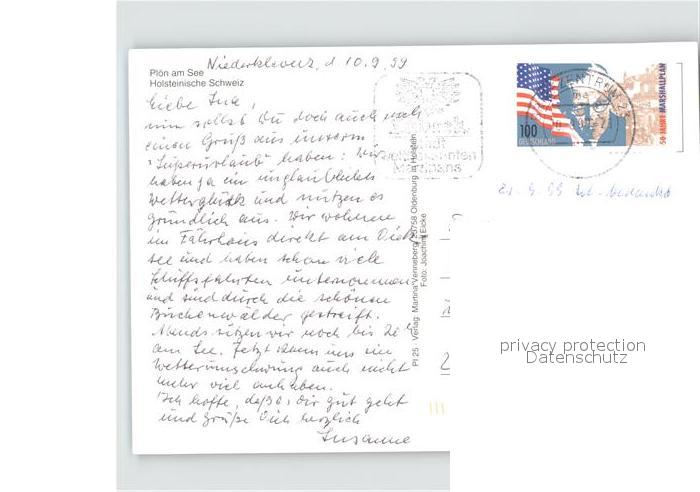 Plön am See
Holsteinische Schweiz
d. 10.9.99
Liebe
nun sollst Du doch auch noch
einen Gruß aus unserem
"Superurlaub" haben: Wir
haben ja ein unglaubliches
Wetterglück und nutzen es
gründlich aus. Wir wohnen
im Fährhaus direkt am Diek-
see und haben schon viele
Schiffsfahrten unternommen
und sind durch die schönen
Buchenwälder gestreift.
Abends sitzen wir noch bis
am See. Jetzt kann uns ein
Wetterumschwung auch nicht
mehr viel anhaben.
Ich hoffe, daß es Dir gut geht
und grüße Dich herzlich
Susanne
PI 25 · Verlag: Martina Venneberg, 23758 Oldenburg in Holstein
Foto: Joachim Eicke
Stadt
weltbekannten
Marzipans
100
DEUTSCHLAND
50 JAHRE MARSHALLPLAN
BRIEFZENTRUM
privacy protection
Datenschutz